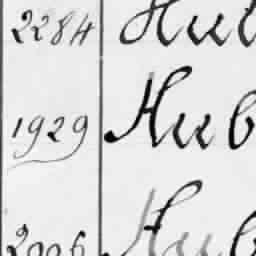 2284 Hub
1929 Hub
2006 Hub